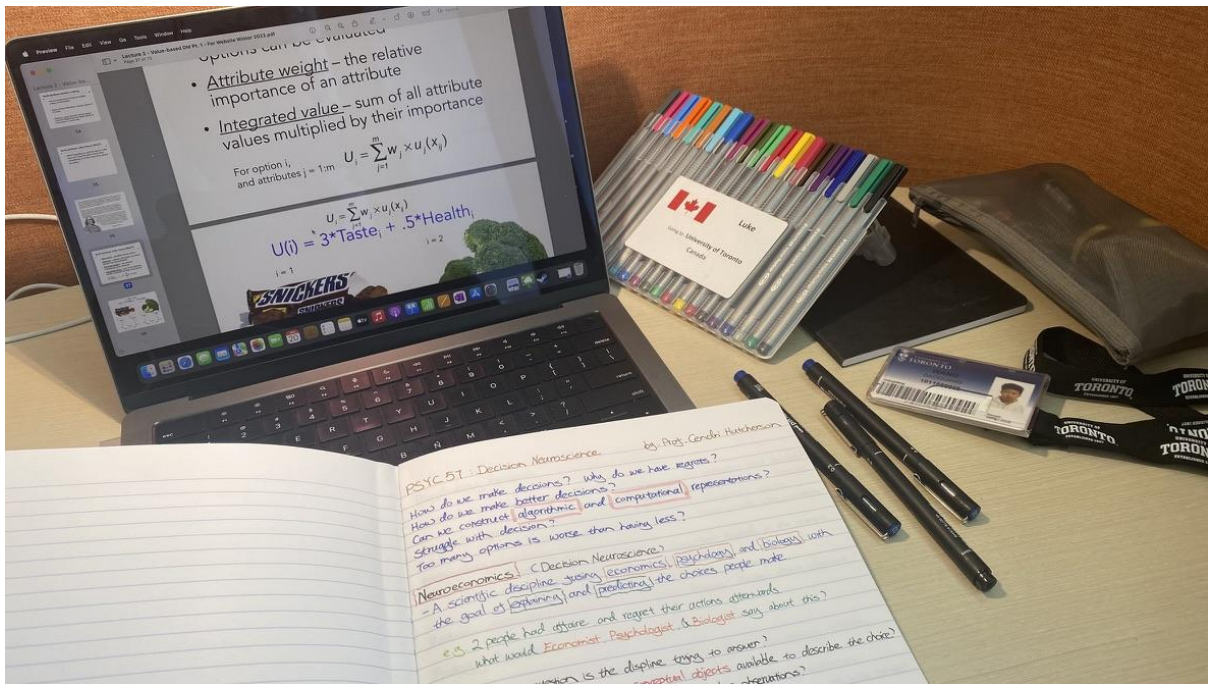 Preview File Edit View Go Tools Window Help
Lecture 2 - Value-based DM Pt. 1 - For Website Winter 2023.pdf
options can be evaluated
• Attribute weight – the relative
importance of an attribute
• Integrated value – sum of all attribute
values multiplied by their importance
For option i,
and attributes j = 1:m
U_i = Σ_{j=1}^{m} w_j × u_j(x_ij)
U_i = Σ_{j=1}^{m} w_j × u_j(x_ij)
U(i) = 3*Taste_i + .5*Health_i
i = 1
i = 2
SNICKERS
SNICKERS
Luke
University of Toronto
Canada
TORONTO
UNIVERSITY OF
TORONTO
TORONTO
TORONTO
PSYC 57 : Decision Neuroscience
by. Prof. Cendri Hutcherson
How do we make decisions? Why do we have regrets?
How do we make better decisions?
Can we construct algorithmic and computational representations?
Struggle with decision?
Too many options is worse than having less?
Neuroeconomics (Decision Neuroscience)
- A scientific discipline fusing economics, psychology, and biology with
the goal of explaining and predicting the choices people make
e.g. 2 people had affaire and regret their actions afterwards
what would Economist, Psychologist, & Biologist say about this?
is the displine trying to answer?
conceptual objects available to describe the choice?
observations?